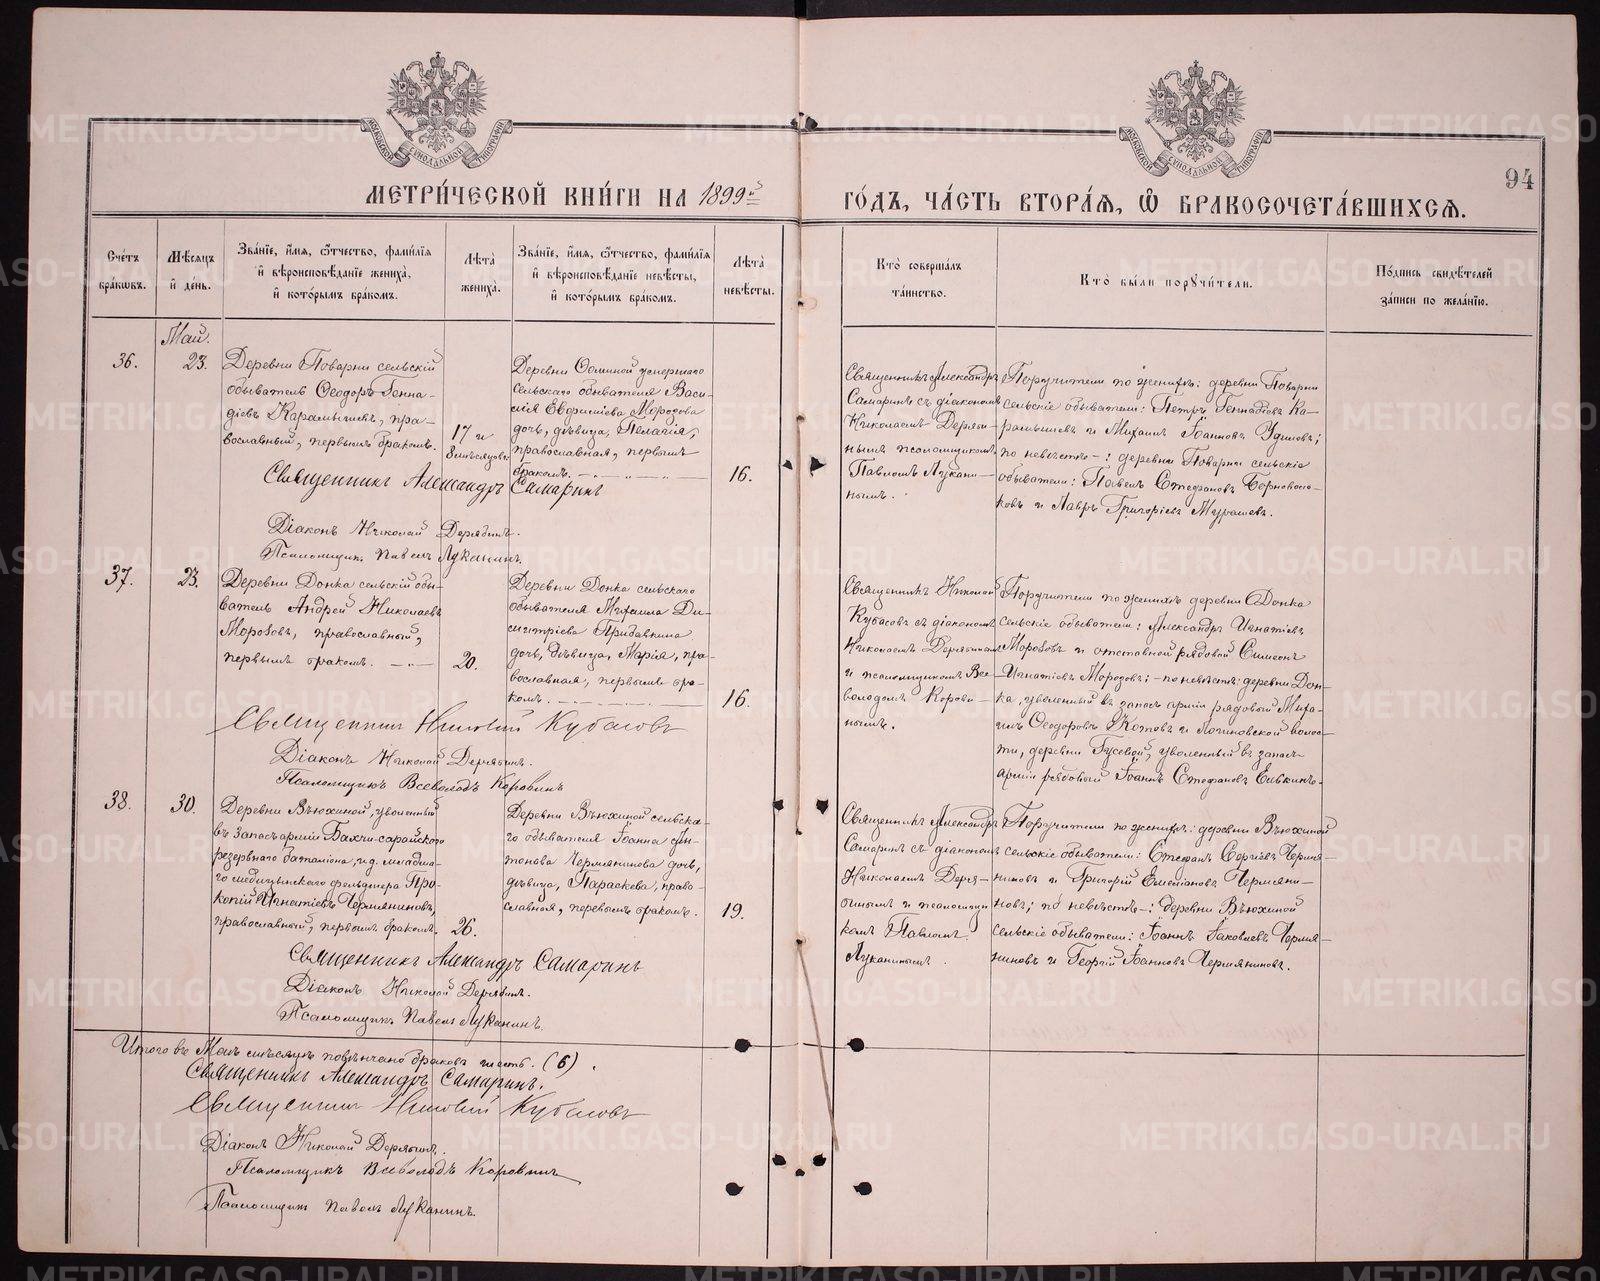 МЕТРИ́ЧЕСКОЙ КНИ́ГИ НА 1899й
ГО́ДЪ, ЧА́СТЬ ВТОРА́Ѧ, Ѽ БРАКОСОЧЕТА́ВШИХСѦ.
94
Сче́тъ бра́кѡвъ.
Мѣ́сѧцъ и҆ де́нь.
Зва́нїе, и҆́мѧ, ѻ҆́тчество, фами́лїѧ
и҆ вѣроисповѣ́данїе жениха̀,
и҆ кото́рымъ бра́комъ.
Лѣ́та жениха̀.
Зва́нїе, и҆́мѧ, ѻ҆́тчество, фами́лїѧ
и҆ вѣроисповѣ́данїе невѣ́сты,
и҆ кото́рымъ бра́комъ.
Лѣ́та невѣ́сты.
Кто̀ соверша́лъ
та́инство.
Кто̀ бы́ли порꙋчи́тели.
По́дпись свидѣ́телей
за́писи по жела́нїю.
Май.
36.
23.
Деревни Поварни сельскій
обыватель Ѳеодоръ Генна-
діевъ Карамышевъ, пра-
вославный, первымъ бракомъ.
17 и
8 мѣсяцовъ
Деревни Осиной умершаго
сельскаго обывателя Васи-
лія Евфиміева Морозова
дочь, дѣвица, Пелагія,
православная, первымъ
бракомъ.
16.
Священникъ Александръ
Самаринъ съ діакономъ
Николаемъ Деряби-
нымъ псаломщикомъ
Павломъ Лукани-
нымъ.
Поручители по женихѣ: деревни Поварни
сельскіе обыватели: Петръ Геннадіевъ Ка-
рамышевъ и Михаилъ Іоанновъ Удиловъ;
по невѣстѣ: деревни Поварни сельскіе
обыватели: Павелъ Стефановъ Борноволо-
ковъ и Лавръ Григоріевъ Мурашевъ.
Священникъ Александръ Самаринъ
Діаконъ Николай Дерябинъ.
Псаломщикъ Павелъ Луканинъ.
37.
23.
Деревни Донка сельскій обы-
ватель Андрей Николаевъ
Морозовъ, православный,
первымъ бракомъ.
20.
Деревни Донка сельскаго
обывателя Михаила Ди-
митріева Придавкина
дочь, дѣвица, Марія, пра-
вославная, первымъ бра-
комъ.
16.
Священникъ Николай
Кубасовъ съ діакономъ
Николаемъ Дерябинымъ
и псаломщикомъ Все-
володомъ Корови-
нымъ.
Поручители по женихѣ деревни Донка
сельскіе обыватели: Александръ Игнатіевъ
Морозовъ и отставной рядовой Симеонъ
Игнатіевъ Морозовъ; по невѣстѣ: деревни Дон-
ка, уволенный въ запасъ арміи рядовый Миха-
илъ Ѳеодоровъ Котовъ и Логиновской волос-
ти, деревни Гусевой, уволенный въ запасъ
арміи рядовый Іоаннъ Стефановъ Еивкинъ.
Священникъ Николай Кубасовъ
Діаконъ Николай Дерябинъ.
Псаломщикъ Всеволодъ Коровинъ
38.
30.
Деревни Вьюхиной, уволенный
въ запасъ арміи Бахчи-сарайскаго
резервнаго баталіона, и.д. младша-
го медицынскаго фельдшера Про-
копій Игнатіевъ Чермяниновъ,
православный, первымъ бракомъ.
26.
Деревни Вьюхиной сельска-
го обывателя Іоанна Ан-
тонова Чермянинова дочь,
дѣвица, Параскева, право-
славная, первымъ бракомъ.
19.
Священникъ Александръ
Самаринъ съ діакономъ
Николаемъ Деря-
бинымъ и псаломщи-
комъ Павломъ
Луканинымъ.
Поручители по женихѣ: деревни Вьюхиной
сельскіе обыватели: Стефанъ Сергіевъ Чермя-
ниновъ и Григорій Емеліановъ Чермяни-
новъ; по невѣстѣ: деревни Вьюхиной
сельскіе обыватели: Іоаннъ Іаковлевъ Чермя-
ниновъ и Георгій Іоанновъ Чермяниновъ.
Священникъ Александръ Самаринъ
Діаконъ Николай Дерябинъ.
Псаломщикъ Павелъ Луканинъ.
Итого въ Маѣ мѣсяцѣ повѣнчано браковъ шесть. (6).
Священникъ Александръ Самаринъ.
Священникъ Николай Кубасовъ
Діаконъ Николай Дерябинъ.
Псаломщикъ Всеволодъ Коровинъ
Псаломщикъ Павелъ Луканинъ.